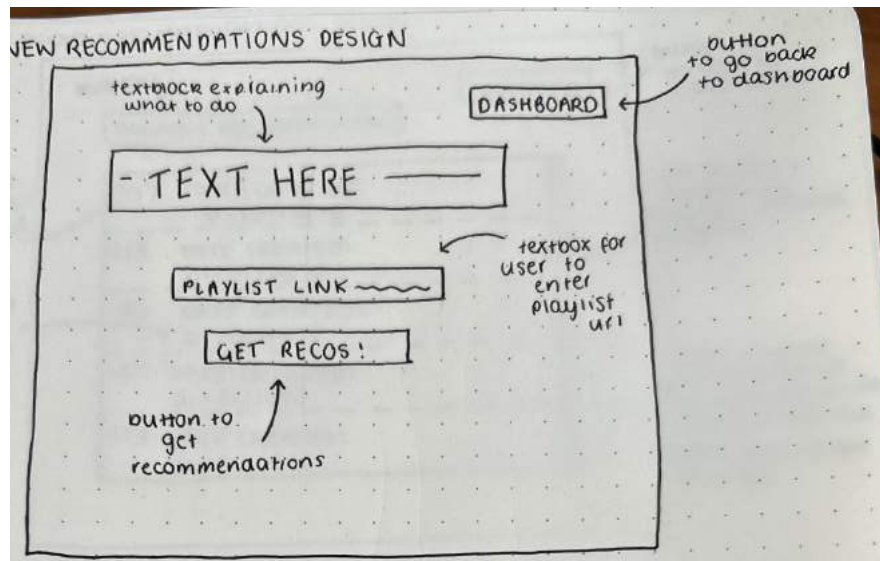 NEW RECOMMENDATIONS DESIGN
button
to go back
to dashboard
textblock explaining
what to do
DASHBOARD
- TEXT HERE
textbox for
user to
enter
playlist
url
PLAYLIST LINK
GET RECOS!
button to
get
recommendations